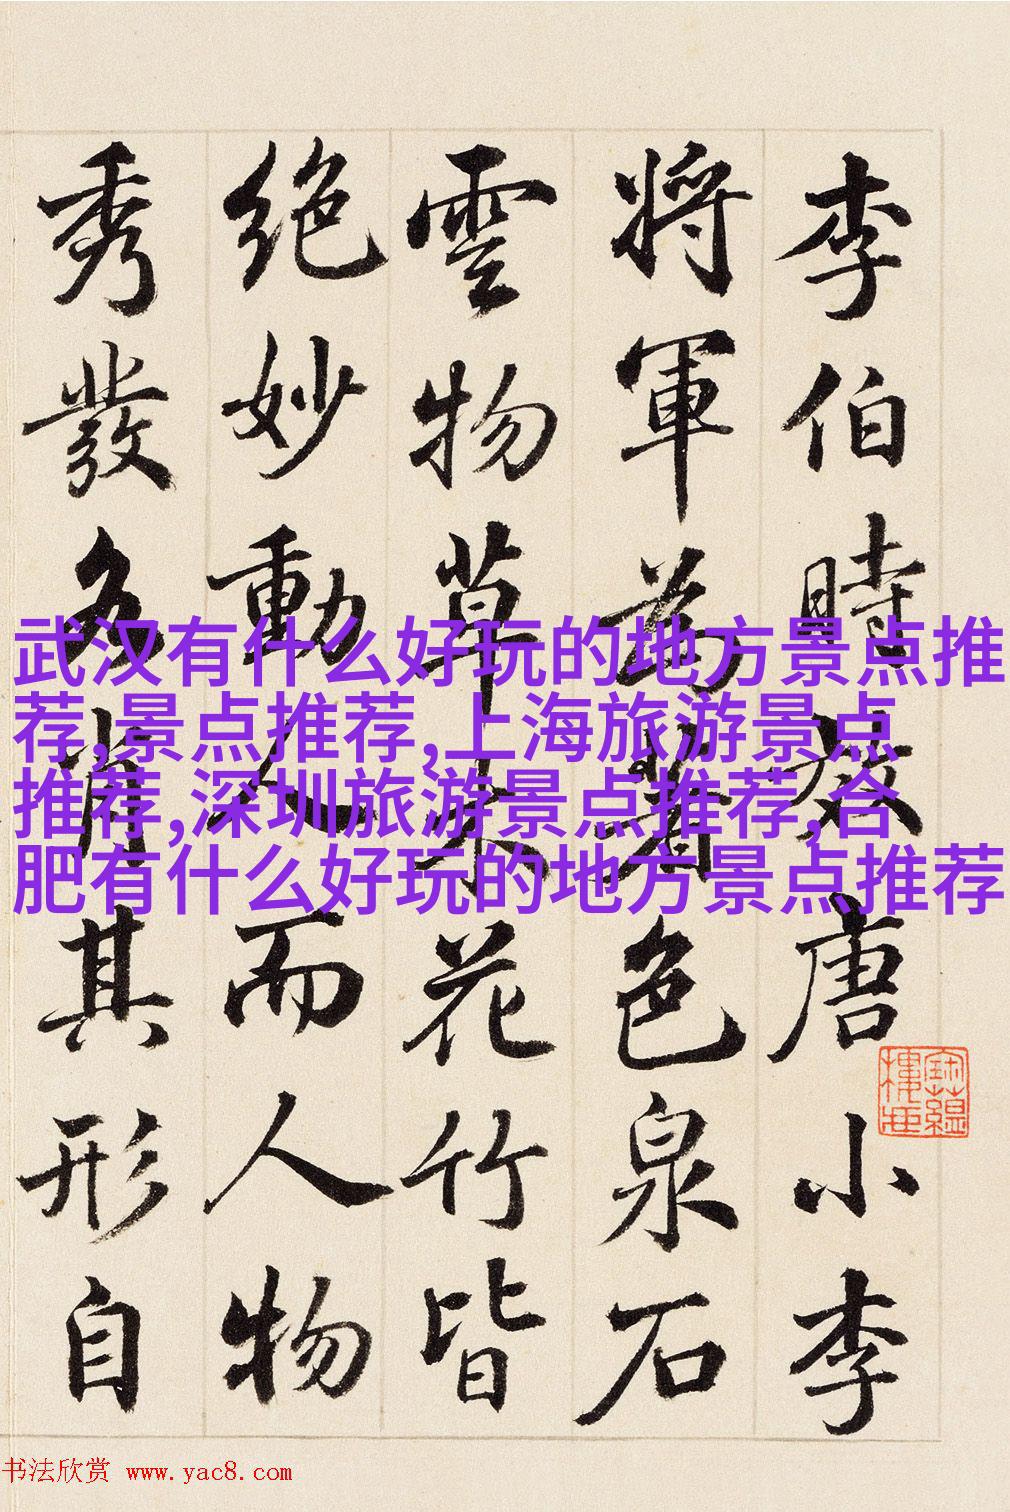 李伯時效唐小李
將軍為著色泉石
雲物草木花竹皆
絕妙動人而人物
秀發各肖其形自
武汉有什么好玩的地方景点推
荐,景点推荐,上海旅游景点
推荐,深圳旅游景点推荐,合
肥有什么好玩的地方景点推荐
寶蘊樓藏
书法欣赏 www.yac8.com